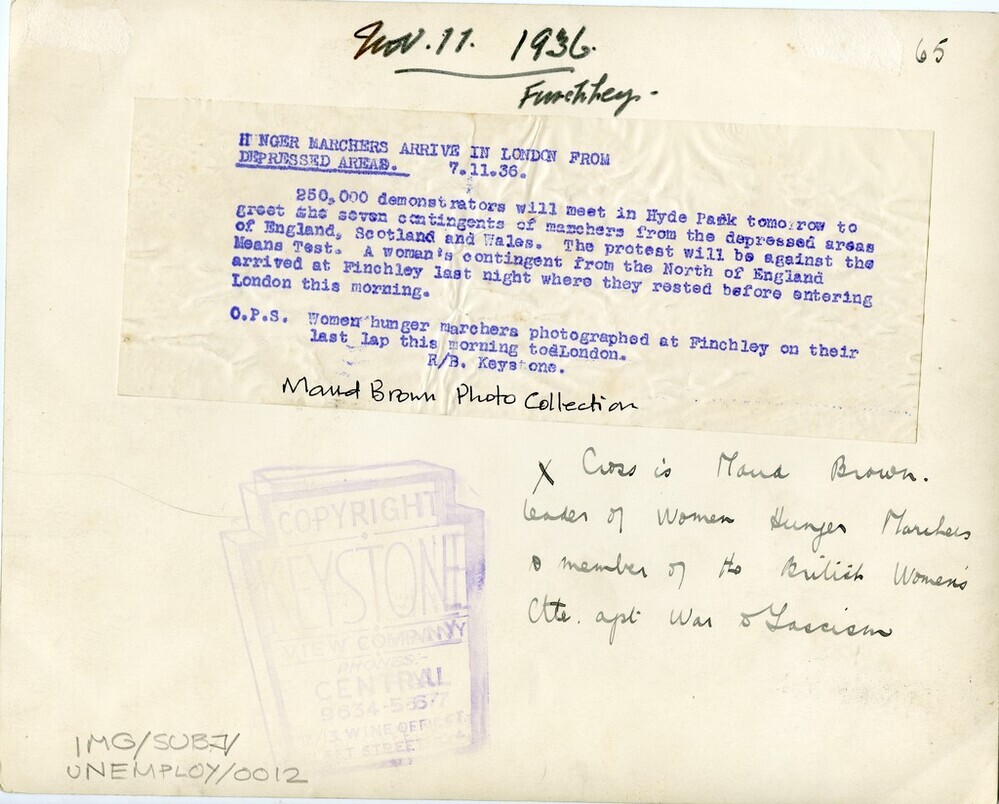 Nov. 11. 1936.
65
Finchley.
H NGER MARCHERS ARRIVE IN LONDON FROM
DEPRESSED AREAS. 7.11.36.
250,000 demonstrators will meet in Hyde Park tomorrow to
greet the seven contingents of marchers from the depressed areas
of England, Scotland and Wales. The protest will be against the
Means Test. A woman's contingent from the North of England
arrived at Finchley last night where they rested before entering
London this morning.
O.P.S. Women hunger marchers photographed at Finchley on their
last lap this morning todLondon.
R/B. Keystone.
Maud Brown Photo Collection
X Cross is Maud Brown.
leader of Women Hunger Marchers
& member of the British Women's
Ctte. agst War & Fascism
COPYRIGHT
KEYSTONE
VIEW COMPANY
PHONES:-
CENTRAL
9634-5-6-7
WINE OFFICE CT.
STREET
IMG/SUBJ/
UNEMPLOY/0012